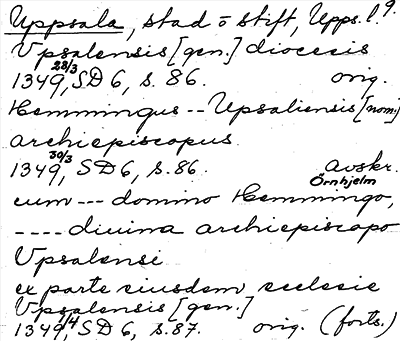 Uppsala, stad o stift, Upps. l. 9.
Vpsalensis [gen.] diocesis
1349 28/3, SD 6, s. 86. orig.
Hemmingus -- Upsaliensis [nom.]
archiepiscopus
1349 30/3, SD 6, s. 86. avskr. Örnhjelm
cum --- domino Hemmingo,
---- diuina archiepiscopo
Vpsalensi
ex parte eiusdem ecclesie
Vpsalensis [gen.]
1349 1/4, SD 6, s. 87. orig. (forts.)